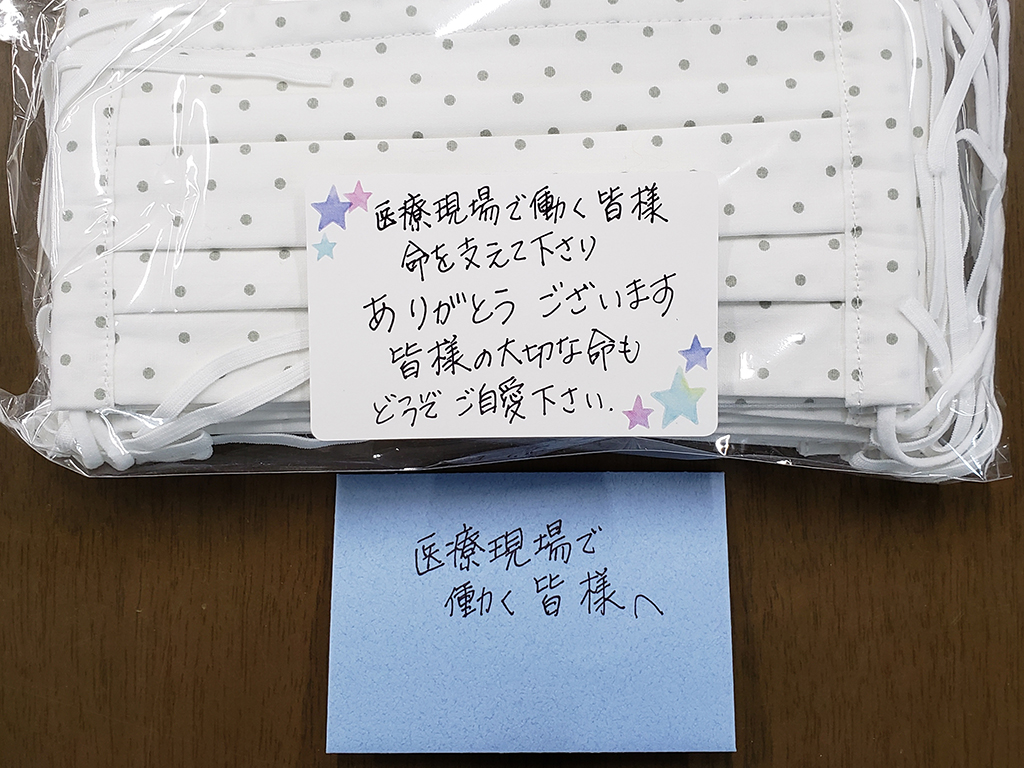 医療現場で働く皆様
命を支えて下さり
ありがとうございます
皆様の大切な命も
どうぞご自愛下さい.
医療現場で
働く皆様へ